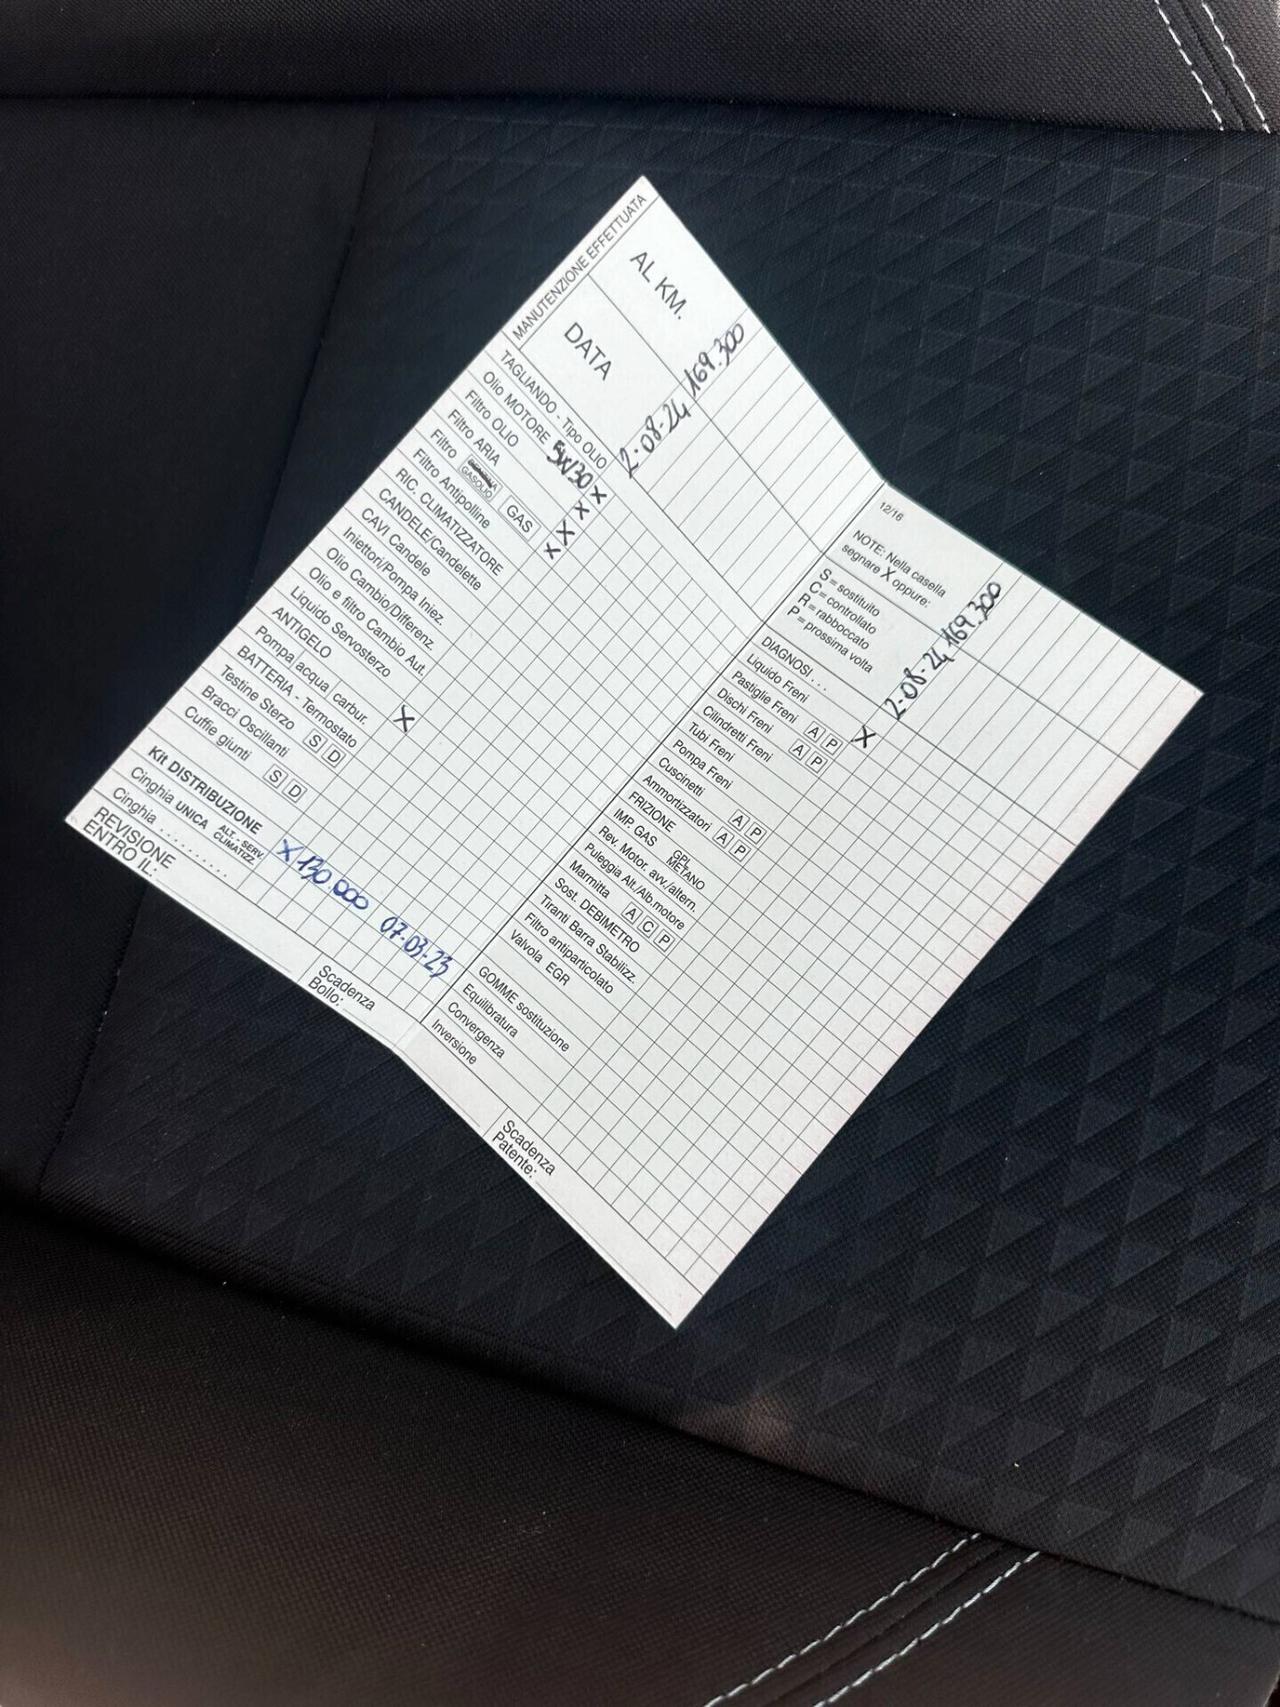 MANUTENZIONE EFFETTUATA
AL KM.
169.300
DATA
2-08-24
TAGLIANDO - Tipo OLIO
Olio MOTORE 5W30 X
Filtro OLIO X
Filtro ARIA X
Filtro GASOLIO GAS X
Filtro Antipolline
RIC. CLIMATIZZATORE
CANDELE/Candelette
CAVI Candele
Iniettori/Pompa Iniez.
Olio Cambio/Differenz.
Olio e filtro Cambio Aut.
Liquido Servosterzo
ANTIGELO
Pompa acqua carbur.
BATTERIA - Termostato X
Testine Sterzo S D
Bracci Oscillanti
Cuffie giunti S D
Kit DISTRIBUZIONE X 130 000 07-03-23
Cinghia UNICA ALT. - SERV. CLIMATIZZ.
Cinghia ..........
REVISIONE
ENTRO IL:
Scadenza
Bollo:
12/16
NOTE: Nella casella
segnare X oppure:
S = sostituito
C = controllato
R = rabboccato
P = prossima volta
2-08-24 169.300
DIAGNOSI . . .
Liquido Freni X
Pastiglie Freni A P
Dischi Freni A P
Cilindretti Freni
Tubi Freni
Pompa Freni
Cuscinetti A P
Ammortizzatori A P
FRIZIONE
IMP. GAS GPL METANO
Rev. Motor. avv./altern.
Puleggia Alt./Alb.motore
Marmitta A C P
Sost. DEBIMETRO
Tiranti Barra Stabilizz.
Filtro antiparticolato
Valvola EGR
GOMME sostituzione
Equilibratura
Convergenza
Inversione
Scadenza
Patente: